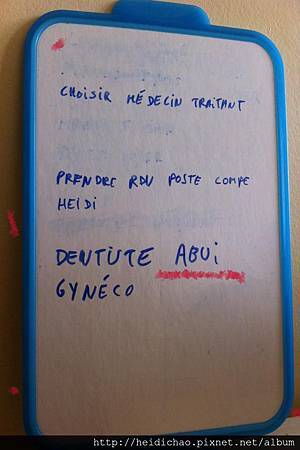 CHOISIR MÉDECIN TRAITANT
PRENDRE RDV POSTE COMPE
HEIDI
DENTUTE ABUi
GYNÉCO
http://heidichao.pixnet.net/album